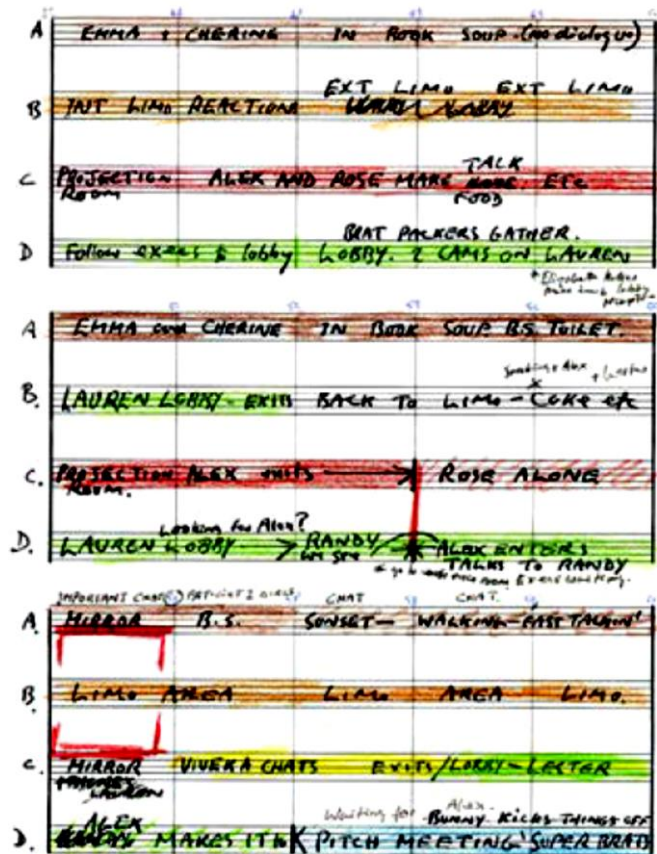 A EMMA + CHERINE IN BOOK SOUP. (no dialogue)
EXT LIMO EXT LIMO
B INT LIMO REACTIONS LOBBY
TALK
C PROJECTION ALEX AND ROSE MAKE ETC
ROOM FOOD
BRAT PACKERS GATHER.
D Follow execs to lobby LOBBY. 2 CAMS ON LAUREN
A EMMA CHERINE IN BOOK SOUP. B.S. TOILET.
B. LAUREN LOBBY - EXITS BACK TO LIMO - COKE etc
C. PROJECTION ALEX exits ROSE ALONE
ROOM.
Looking for Alex?
D. LAUREN LOBBY RANDY ALEX ENTERS
TALKS TO RANDY
IMPORTANT CHAT CHAT CHAT.
A. MIRROR B.S. SUNSET - WALKING - FAST TALKIN'
B. LIMO AREA LIMO AREA - LIMO.
C. MIRROR VIVEKA CHATS EXITS/LOBBY - LESTER
LAUREN
Waiting for Alex.
ALEX BUNNY KICKS THINGS OFF
D. MAKES IT to PITCH MEETING 'SUPER BRATS